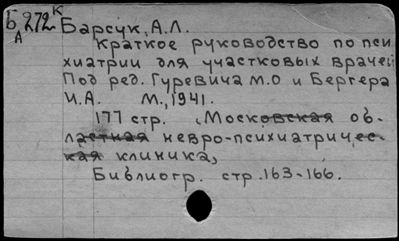 Б272К Барсук, А.Л.
А
Краткое руководство по пси
хиатрии для участковых врачей
Под ред. Гуревича М.О и Бергера
И.А. М., 1941.
177 стр. Московская об-
ластная невро-психиатричес-
кая клиника,
Библиогр. стр.163-166.